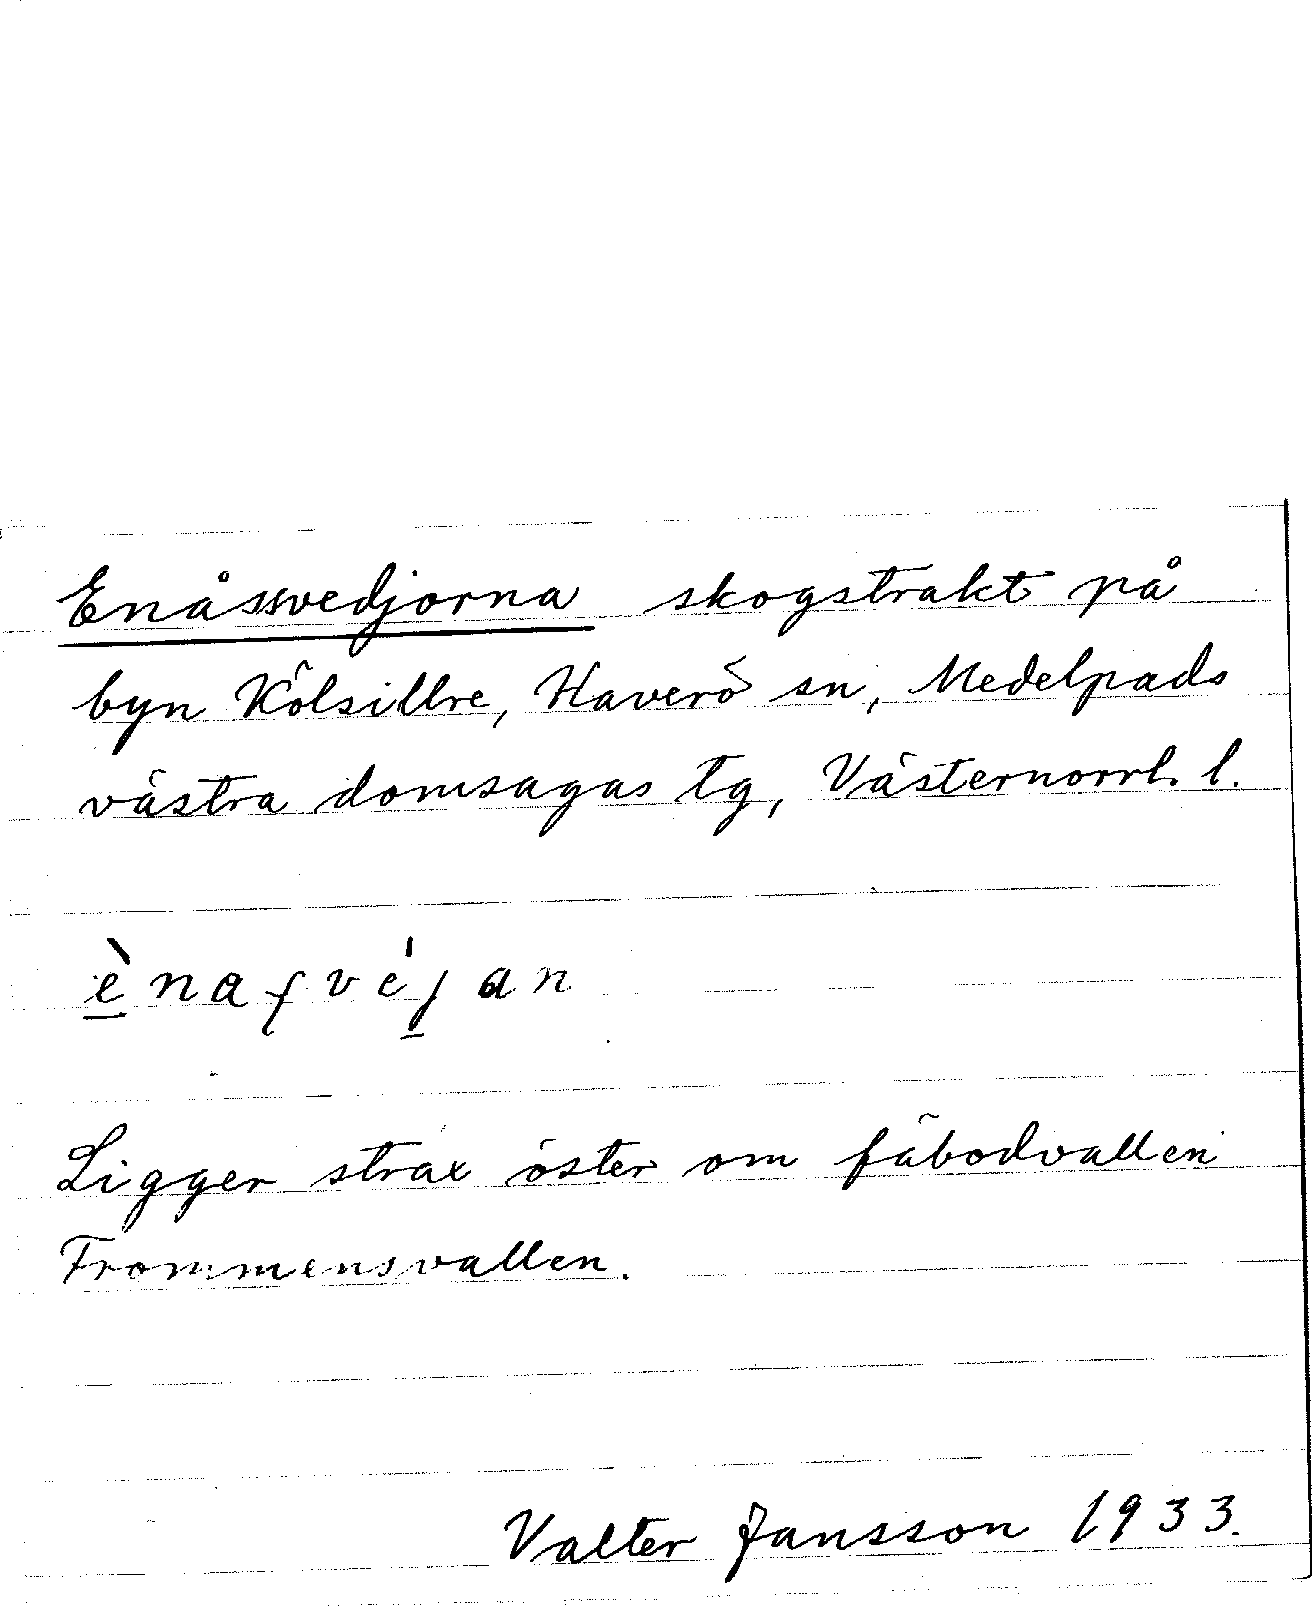 Enåssvedjorna skogstrakt på
byn Kölsillre, Haverö sn, Medelpads
västra domsagas tg, Västernorrl. l.
Ligger strax öster om fäbodvallen
Frommensvallen.
Valter Jansson 1933.